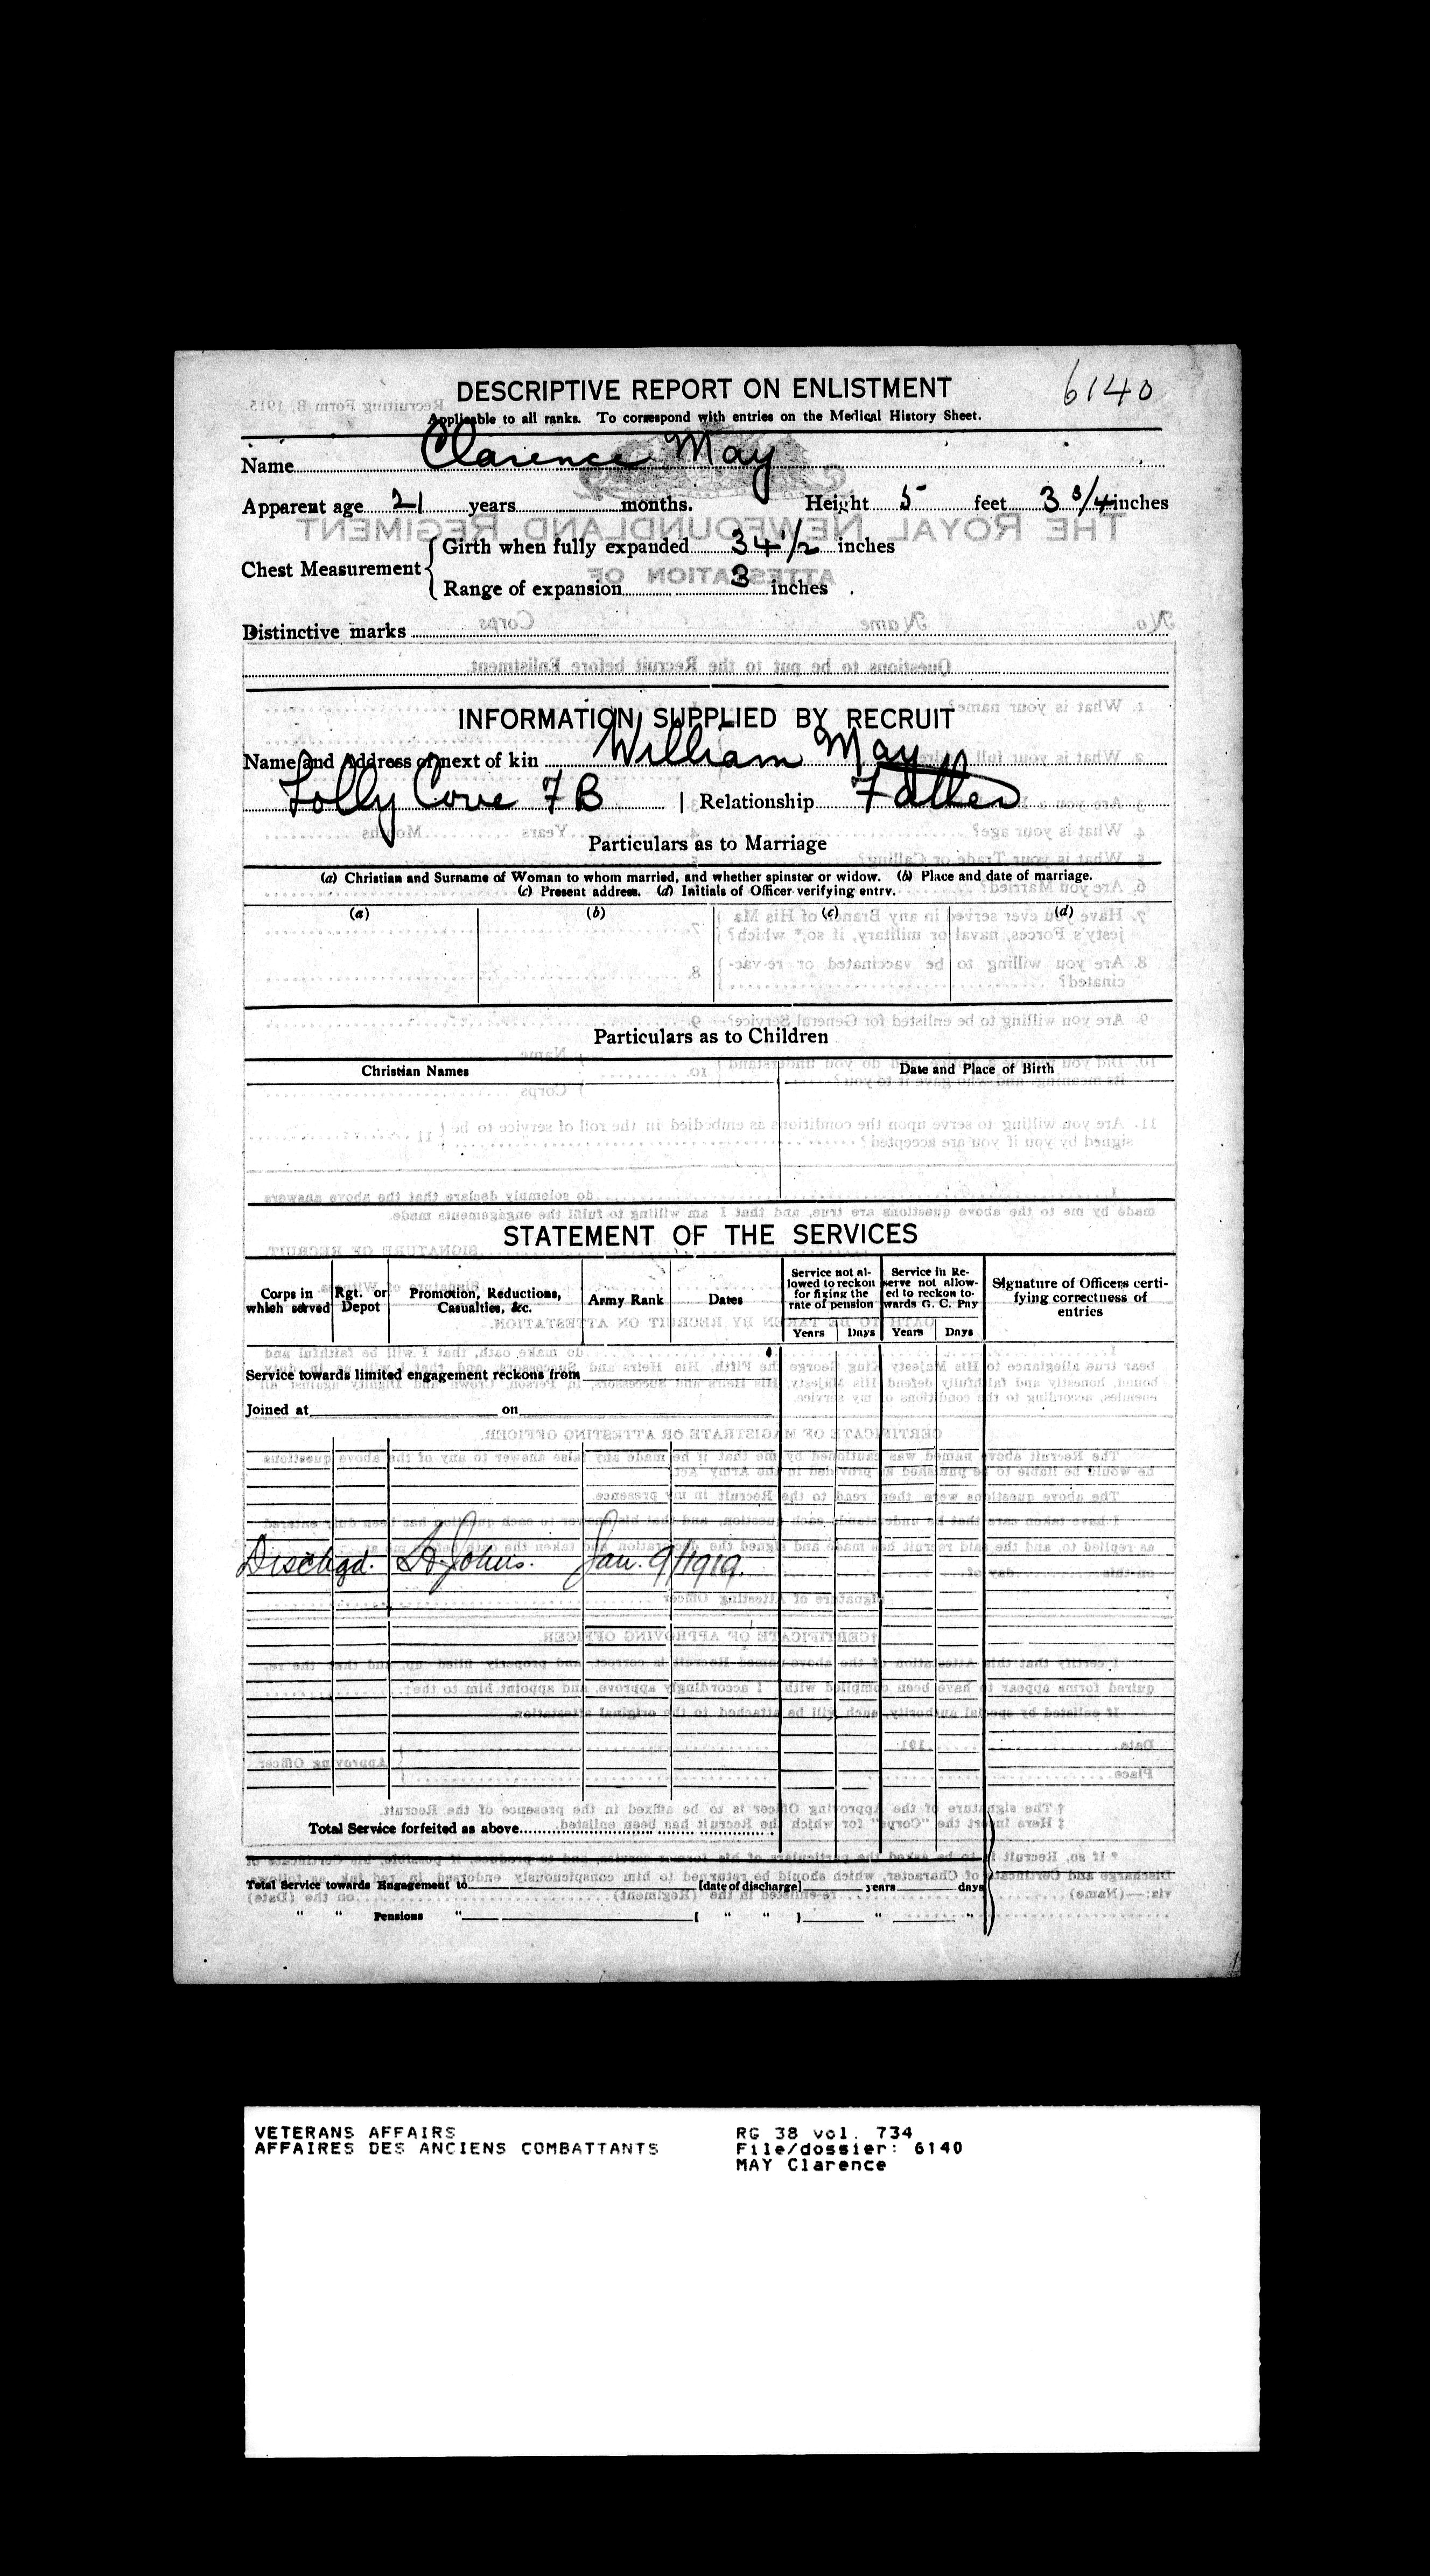 DESCRIPTIVE REPORT ON ENLISTMENT
6140
Applicable to all ranks. To correspond with entries on the Medical History Sheet.
Name Clarence May
Apparent age 21 years months. Height 5 feet 3 3/4 inches
Chest Measurement { Girth when fully expanded 34 1/2 inches
Range of expansion 3 inches
Distinctive marks
INFORMATION SUPPLIED BY RECRUIT
Name and Address of next of kin William May
Lolly Cove F B | Relationship Father
Particulars as to Marriage
(a) Christian and Surname of Woman to whom married, and whether spinster or widow. (b) Place and date of marriage.
(c) Present address. (d) Initials of Officer verifying entry.
(a) (b) (c) (d)
Particulars as to Children
Christian Names Date and Place of Birth
STATEMENT OF THE SERVICES
Corps in which served Rgt. or Depot Promotion, Reductions, Casualties, &c. Army Rank Dates Service not allowed to reckon for fixing the rate of pension Service in Reserve not allowed to reckon towards G. C. Pay Signature of Officers certifying correctness of entries
Years Days Years Days
Service towards limited engagement reckons from
Joined at on
Dischgd. St Johns. Jan. 9/1919.
Total Service forfeited as above
Total Service towards Engagement to [date of discharge] years days
" " Pensions " [ " " ] " "
VETERANS AFFAIRS RG 38 vol. 734
AFFAIRES DES ANCIENS COMBATTANTS File/dossier: 6140
MAY Clarence